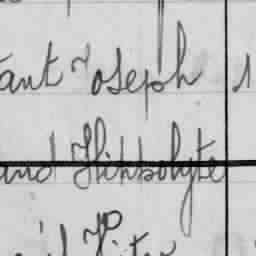 ant Joseph 1
and Hippolyte